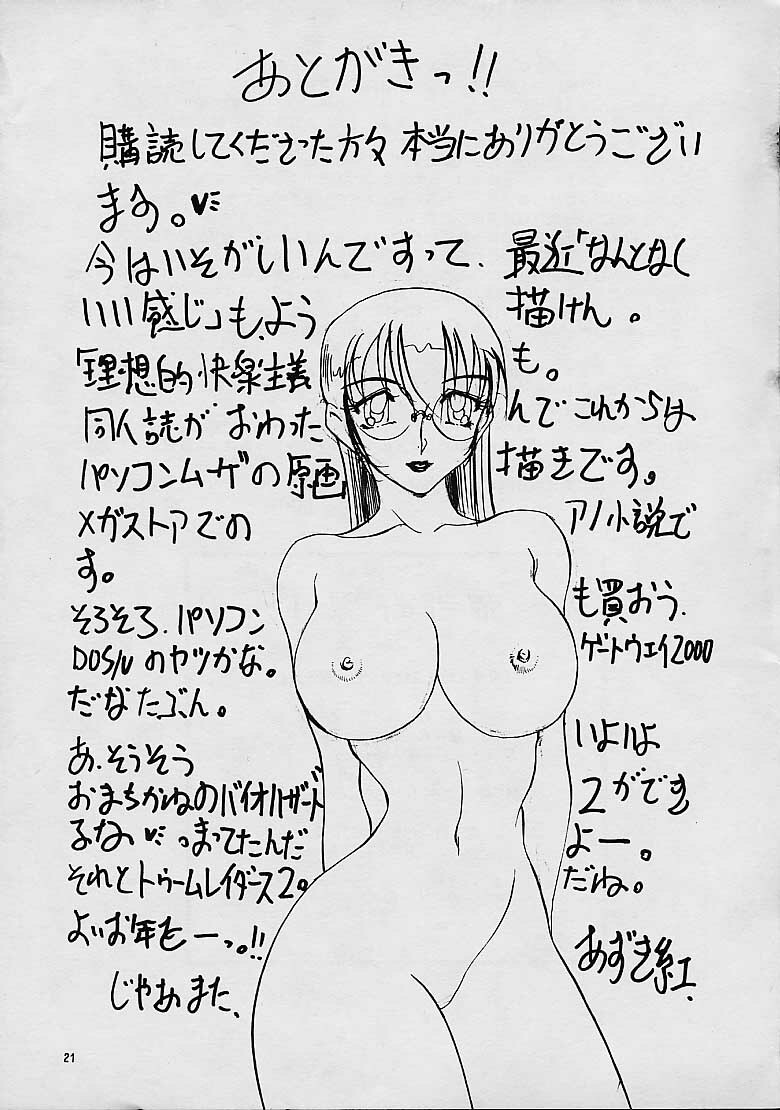 あとがきっ!!
購読してくださった方々 本当にありがとうござい
ます。
今はいそがしいんですって、最近「なんとなく
いい感じ」も、よう描けん。
「理想的快楽主義も。
同人誌がおわったんでこれからは
パソコンムザの原画描きです。
メガストアでのアノ小説で
す。
そろそろ、パソコンも買おう、
DOS/Vのヤツかな。ゲートウェイ2000
だなたぶん。
あ、そうそう いよいよ
おまちかねのバイオハザード2ができ
るなぁ まってたんだよー。
それとトゥームレイダース2。だね。
よいお年をーっ。!!
じゃあまた、
あずき紅、
21